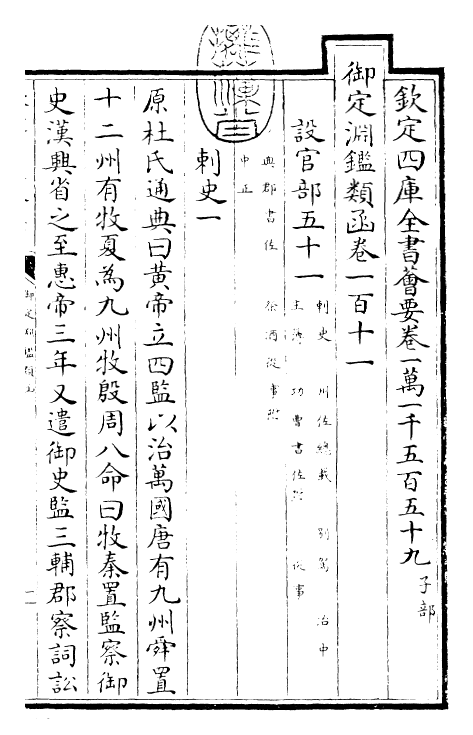 欽定四庫全書薈要卷一萬一千五百五十九 子部
御定淵鑑類函卷一百十一
設官部五十一 刺史 州佐總載 別駕 治中
主簿 功曹書佐附 從事
典郡書佐 祭酒從事附
中正
刺史一
原杜氏通典曰黃帝立四監以治萬國唐有九州舜置
十二州有牧夏為九州牧殷周八命曰牧秦置監察御
史漢興省之至惠帝三年又遣御史監三輔郡察詞訟